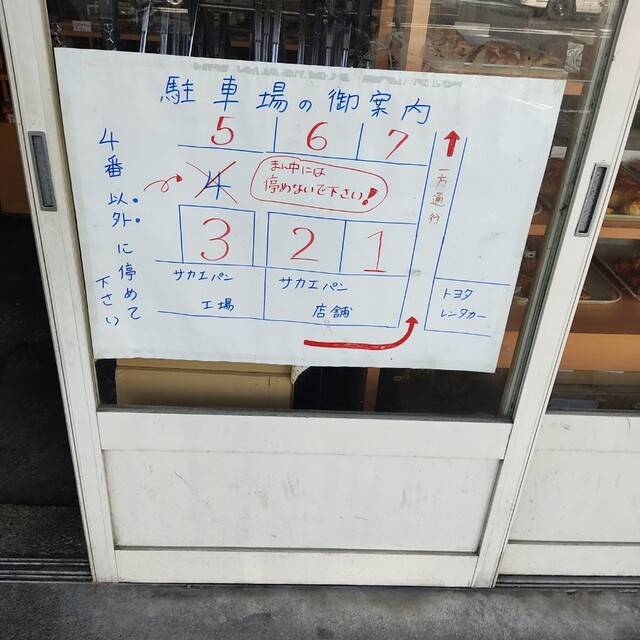 駐車場の御案内
5 6 7
一方通行
4
まん中には
停めないで下さい!
4番以外に停めて
下さい
3 2 1
サカエパン
工場
サカエパン
店舗
トヨタ
レンタカー